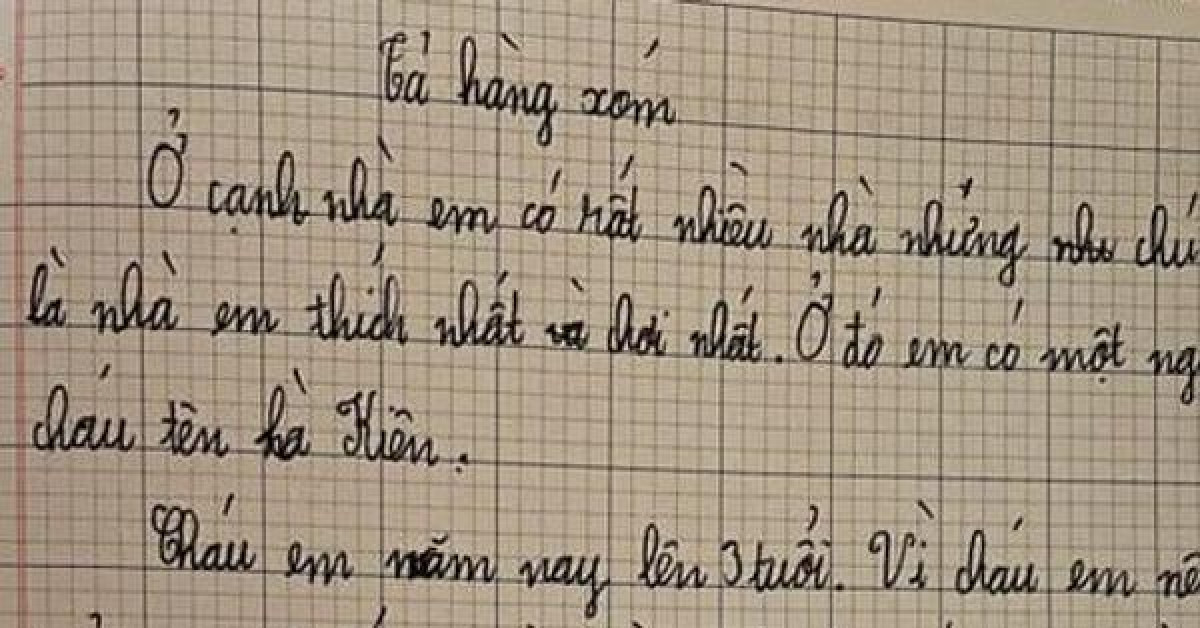 Tả hàng xóm
Ở cạnh nhà em có rất nhiều nhà nhưng như chú
là nhà em thích nhất và chơi nhất. Ở đó em có một
cháu tên hà Kiên.
Cháu em năm nay lên 3 tuổi. Vì cháu em